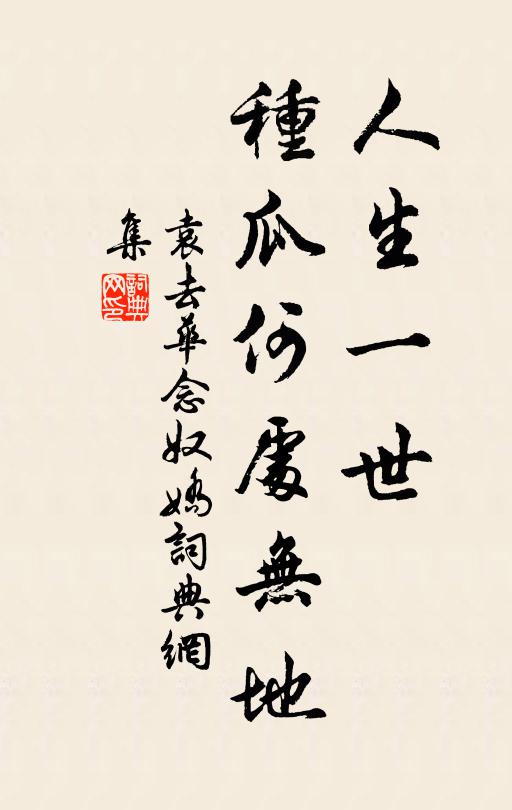 人生一世
種瓜何處無地
袁去華念奴嬌詞典網
集
詞典
网印